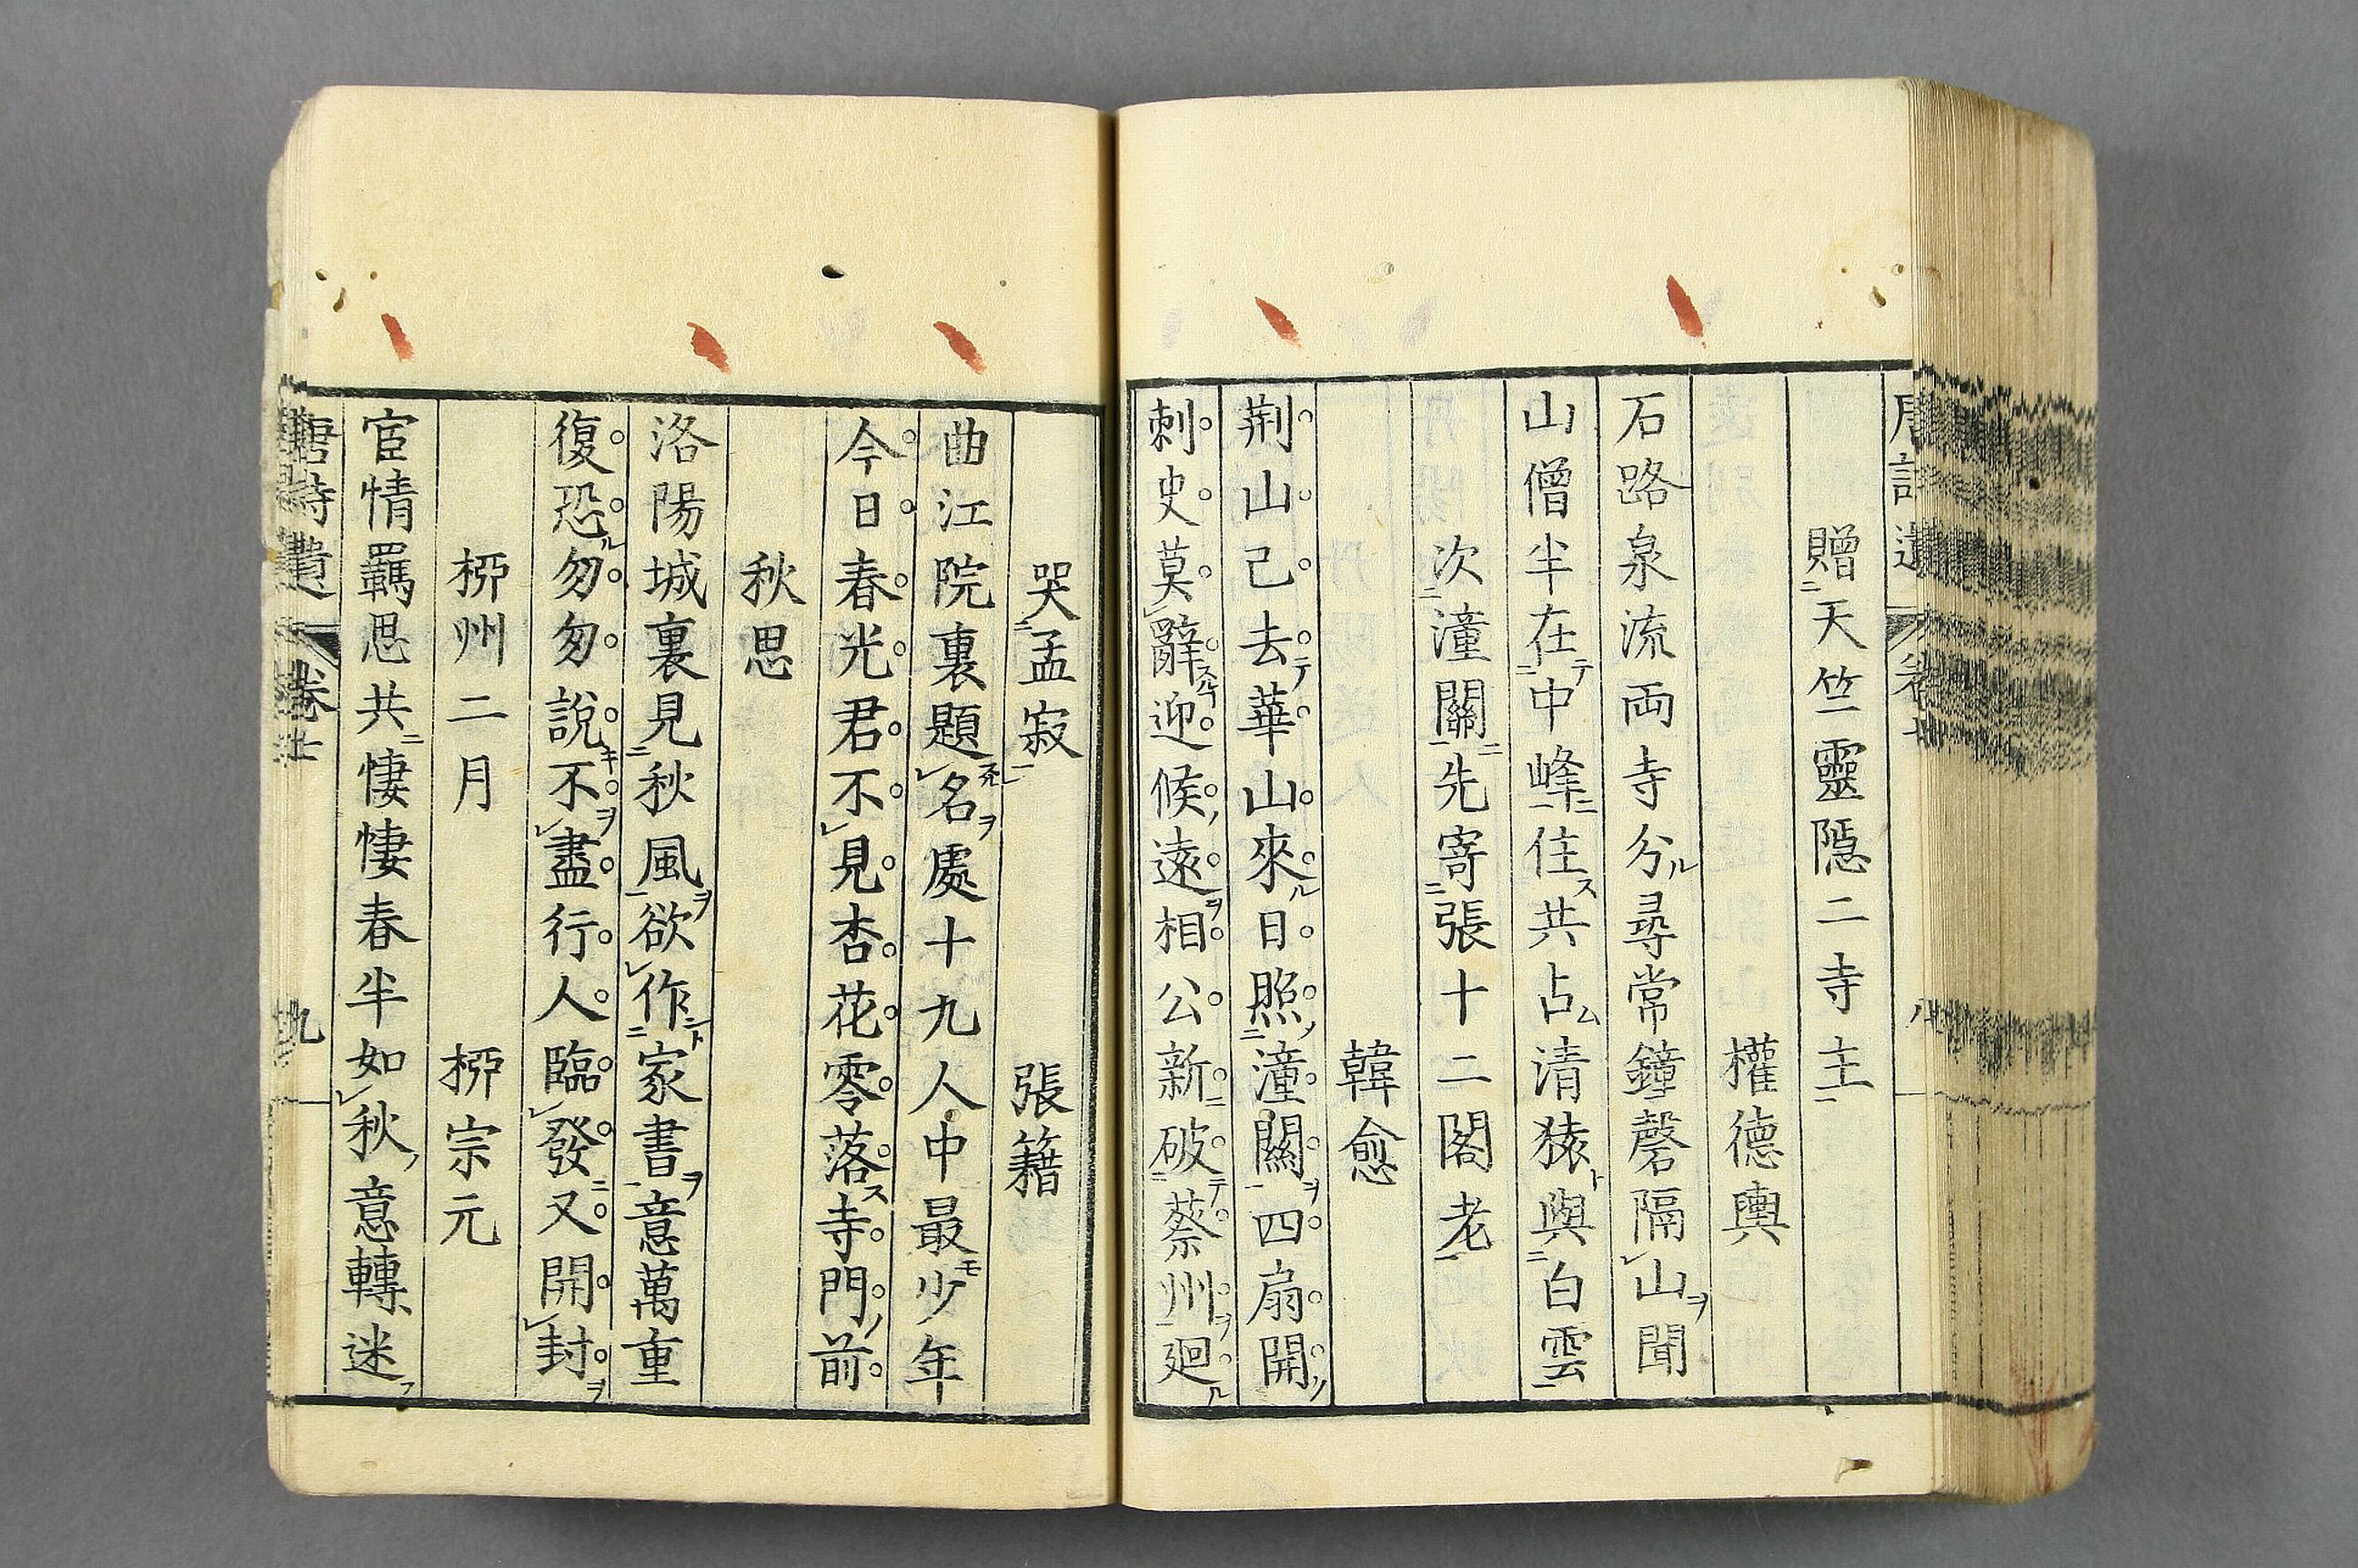 贈天竺靈隱二寺主
權德輿
石路泉流両寺分尋常鐘磬隔山聞
山僧半在中峰住共占清猿與白雲
次潼關先寄張十二閣老
韓愈
荆山已去華山來日照潼關四扇開
刺史莫辭迎候遠相公新破蔡州廻
哭孟寂 張籍
曲江院裏題名處十九人中最少年
今日春光君不見杏花零落寺門前
秋思
洛陽城裏見秋風欲作家書意萬重
復恐匆匆說不盡行人臨發又開封
栁州二月 栁宗元
宦情羈思共悽悽春半如秋意轉迷
唐詩遺 卷七 九